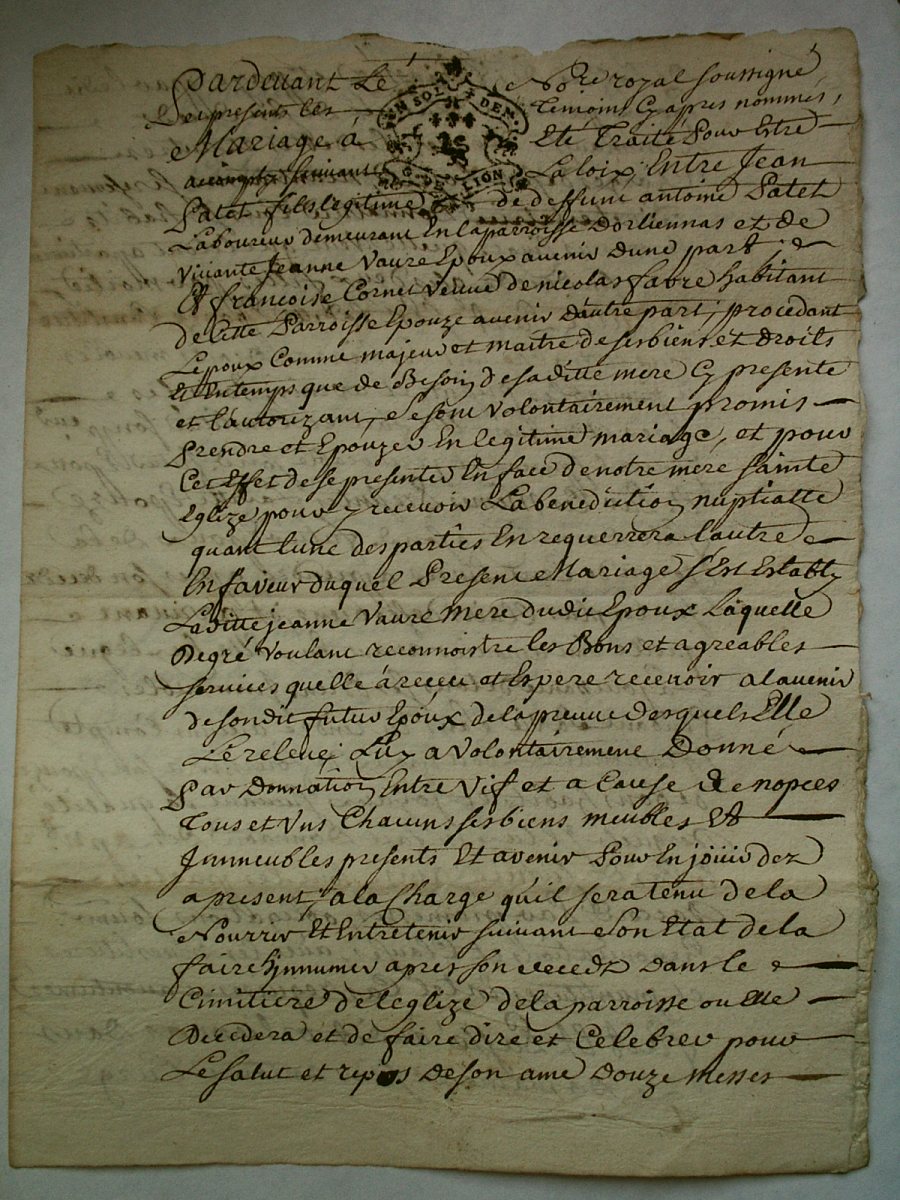 Pardevant Le No.re royal soussigné
Et presents les Temoins Cy apres nommés,
Mariage á Eté Traité Pour Estre
accomply suivant La loix, Entre Jean
Patet fils legitime de deffunt antoine Patet
Laboureur demeurant En la parroisse Dorliennas et de
vivante Jeanne Vauré Epoux avenir Dune part
Et francoise Cornet veuve de nicolas fabre habitant
de cette Parroisse Epouze avenir Dautre part, procedant
Lepoux Comme majeur et maitre de ses biens et droits
Et Entemps que de Besoin de saditte mere Cy presente
et Lautorizant, se sont volontairement promis
Prendre et Epouzer En legitime mariage, et pour
Cet Effet de se presenter En face de notre mere sainte
Eglize pour y recevoir La benediction nuptialle
quant lune des parties En requerrera lautre
En faveur duquel Present Mariage s'Est Estably
Laditte jeanne Vauré Mere dudit Epoux Laquelle
Degré Voulant reconnoistre les Bons et agreables
services quelle á receu et Espere recevoir alavenir
de sondit futur Epoux de la preuve desquels Elle
Le releve, Luy a volontairement Donné
Par Donnation Entre Vif et a Cause de nopces
Tous et Vns Chacuns ses biens meubles Et
Immeubles presents Et avenir Pour En jouir dez
apresent, ala Charge qu'il sera tenu de la
Nourrir Et Entretenir suivant son Etat de la
faire Innumer apres son decedz Dans le
Cimitiere de leglize de la parroisse ou Elle
Decedera et de faire dire et Celebrer pour
Le salut et repos de son ame Douze messes
EN SOL DEN.
G. DE LION